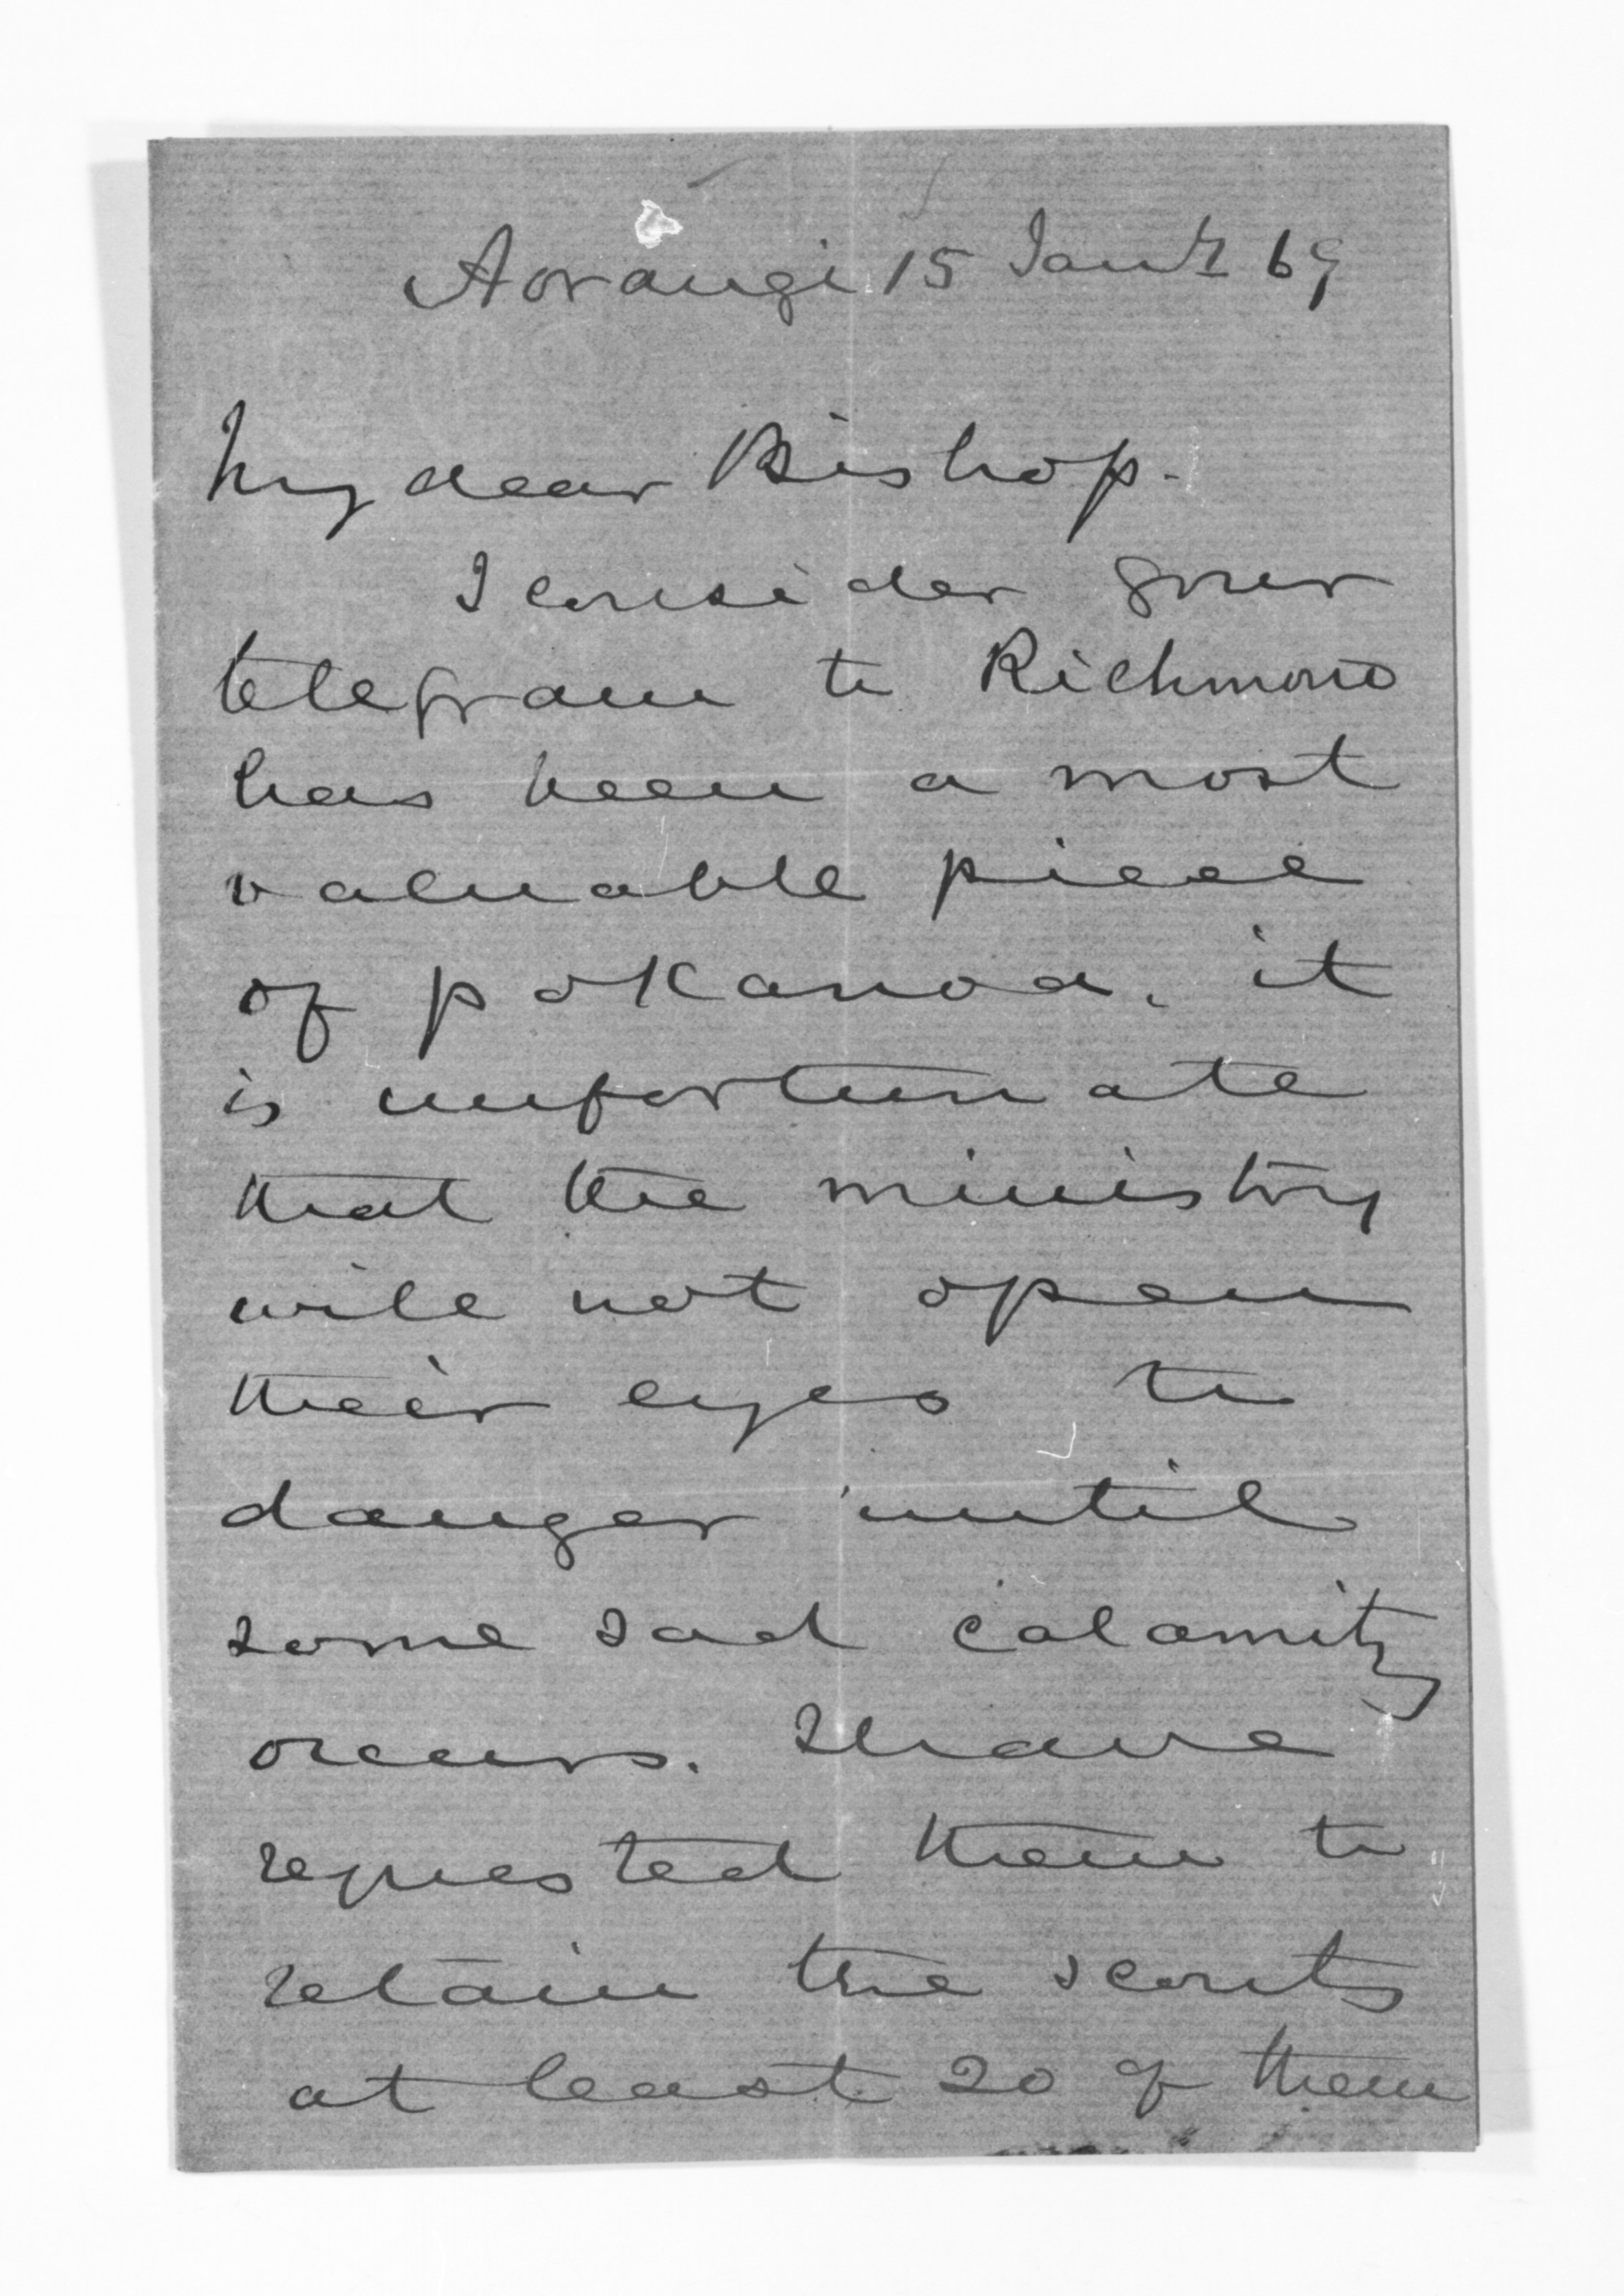 Aorangi 15 Jany 69
My dear Bishop.
I consider your
telegram to Richmond
has been a most
valuable piece
of pokanoa. it
is unfortunate
that the ministry
will not open
their eyes to
danger until
some sad calamity
occurs. I have
requested them to
retain the scouts
at least 20 of them